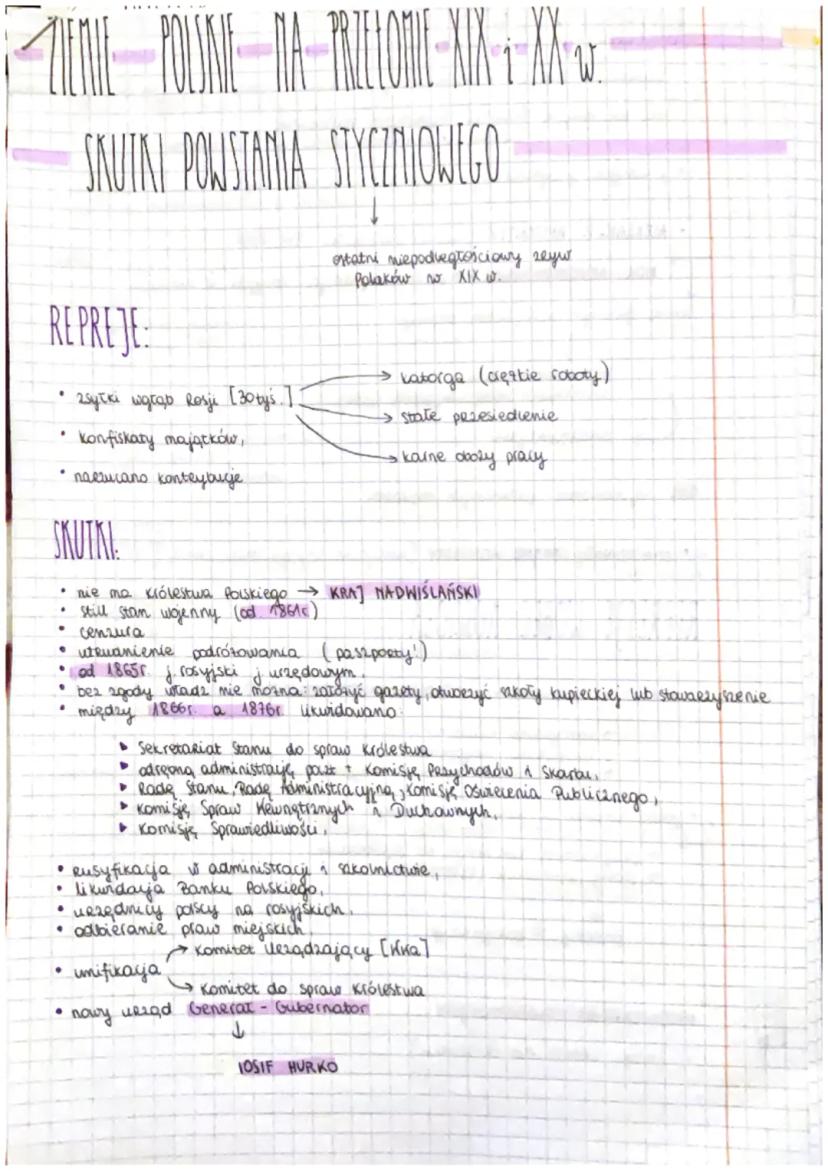 ZIEMIE POLSKIE NA PRZEŁOMIE XIX i XX w.
SKUTKI POWSTANIA STYCZNIOWEGO
↓
ostatni niepodległościowy zryw
Polaków w XIX w.
REPREJE:
→ katorga (ciężkie roboty)
• zsyłki wgłąb Rosji [30tyś.]
→ stałe przesiedlenie
• konfiskaty majątków,
→ karne obozy pracy
• narzucano kontrybucje
SKUTKI:
• nie ma Królestwa Polskiego → KRAJ NADWIŚLAŃSKI
• still stan wojenny (od 1861r)
• cenzura
• utrudnienie podróżowania (paszporty!)
• od 1865r. j. rosyjski j urzędowym.
• bez zgody władz nie można: założyć gazety, otworzyć szkoły kupieckiej lub stowarzyszenie
• między 1866r. a 1876r likwidowano:
▸ Sekretariat Stanu do spraw Królestwa
▸ odrębną administrację poczt + Komisję Przychodów i Skarbu,
▸ Radę Stanu, Radę Administracyjną, Komisję Oświecenia Publicznego,
▸ Komisję Spraw Wewnętrznych i Duchownych,
▸ Komisję Sprawiedliwości,
• rusyfikacja w administracji i szkolnictwie,
• likwidacja Banku Polskiego,
• urzędnicy polscy na rosyjskich,
• odbieranie praw miejskich,
→ Komitet Urządzający [Wwa]
• unifikacja
→ Komitet do spraw Królestwa
• nowy urząd Generał - Gubernator
↓
IOSIF HURKO